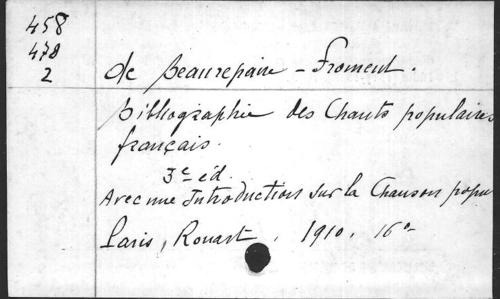 458
478
2
de Beaurepaire - Froment.
Bibliographie des Chants populaires
français.
3e éd.
Avec une Introduction sur la Chanson popu
Paris, Rouart, 1910, 16o